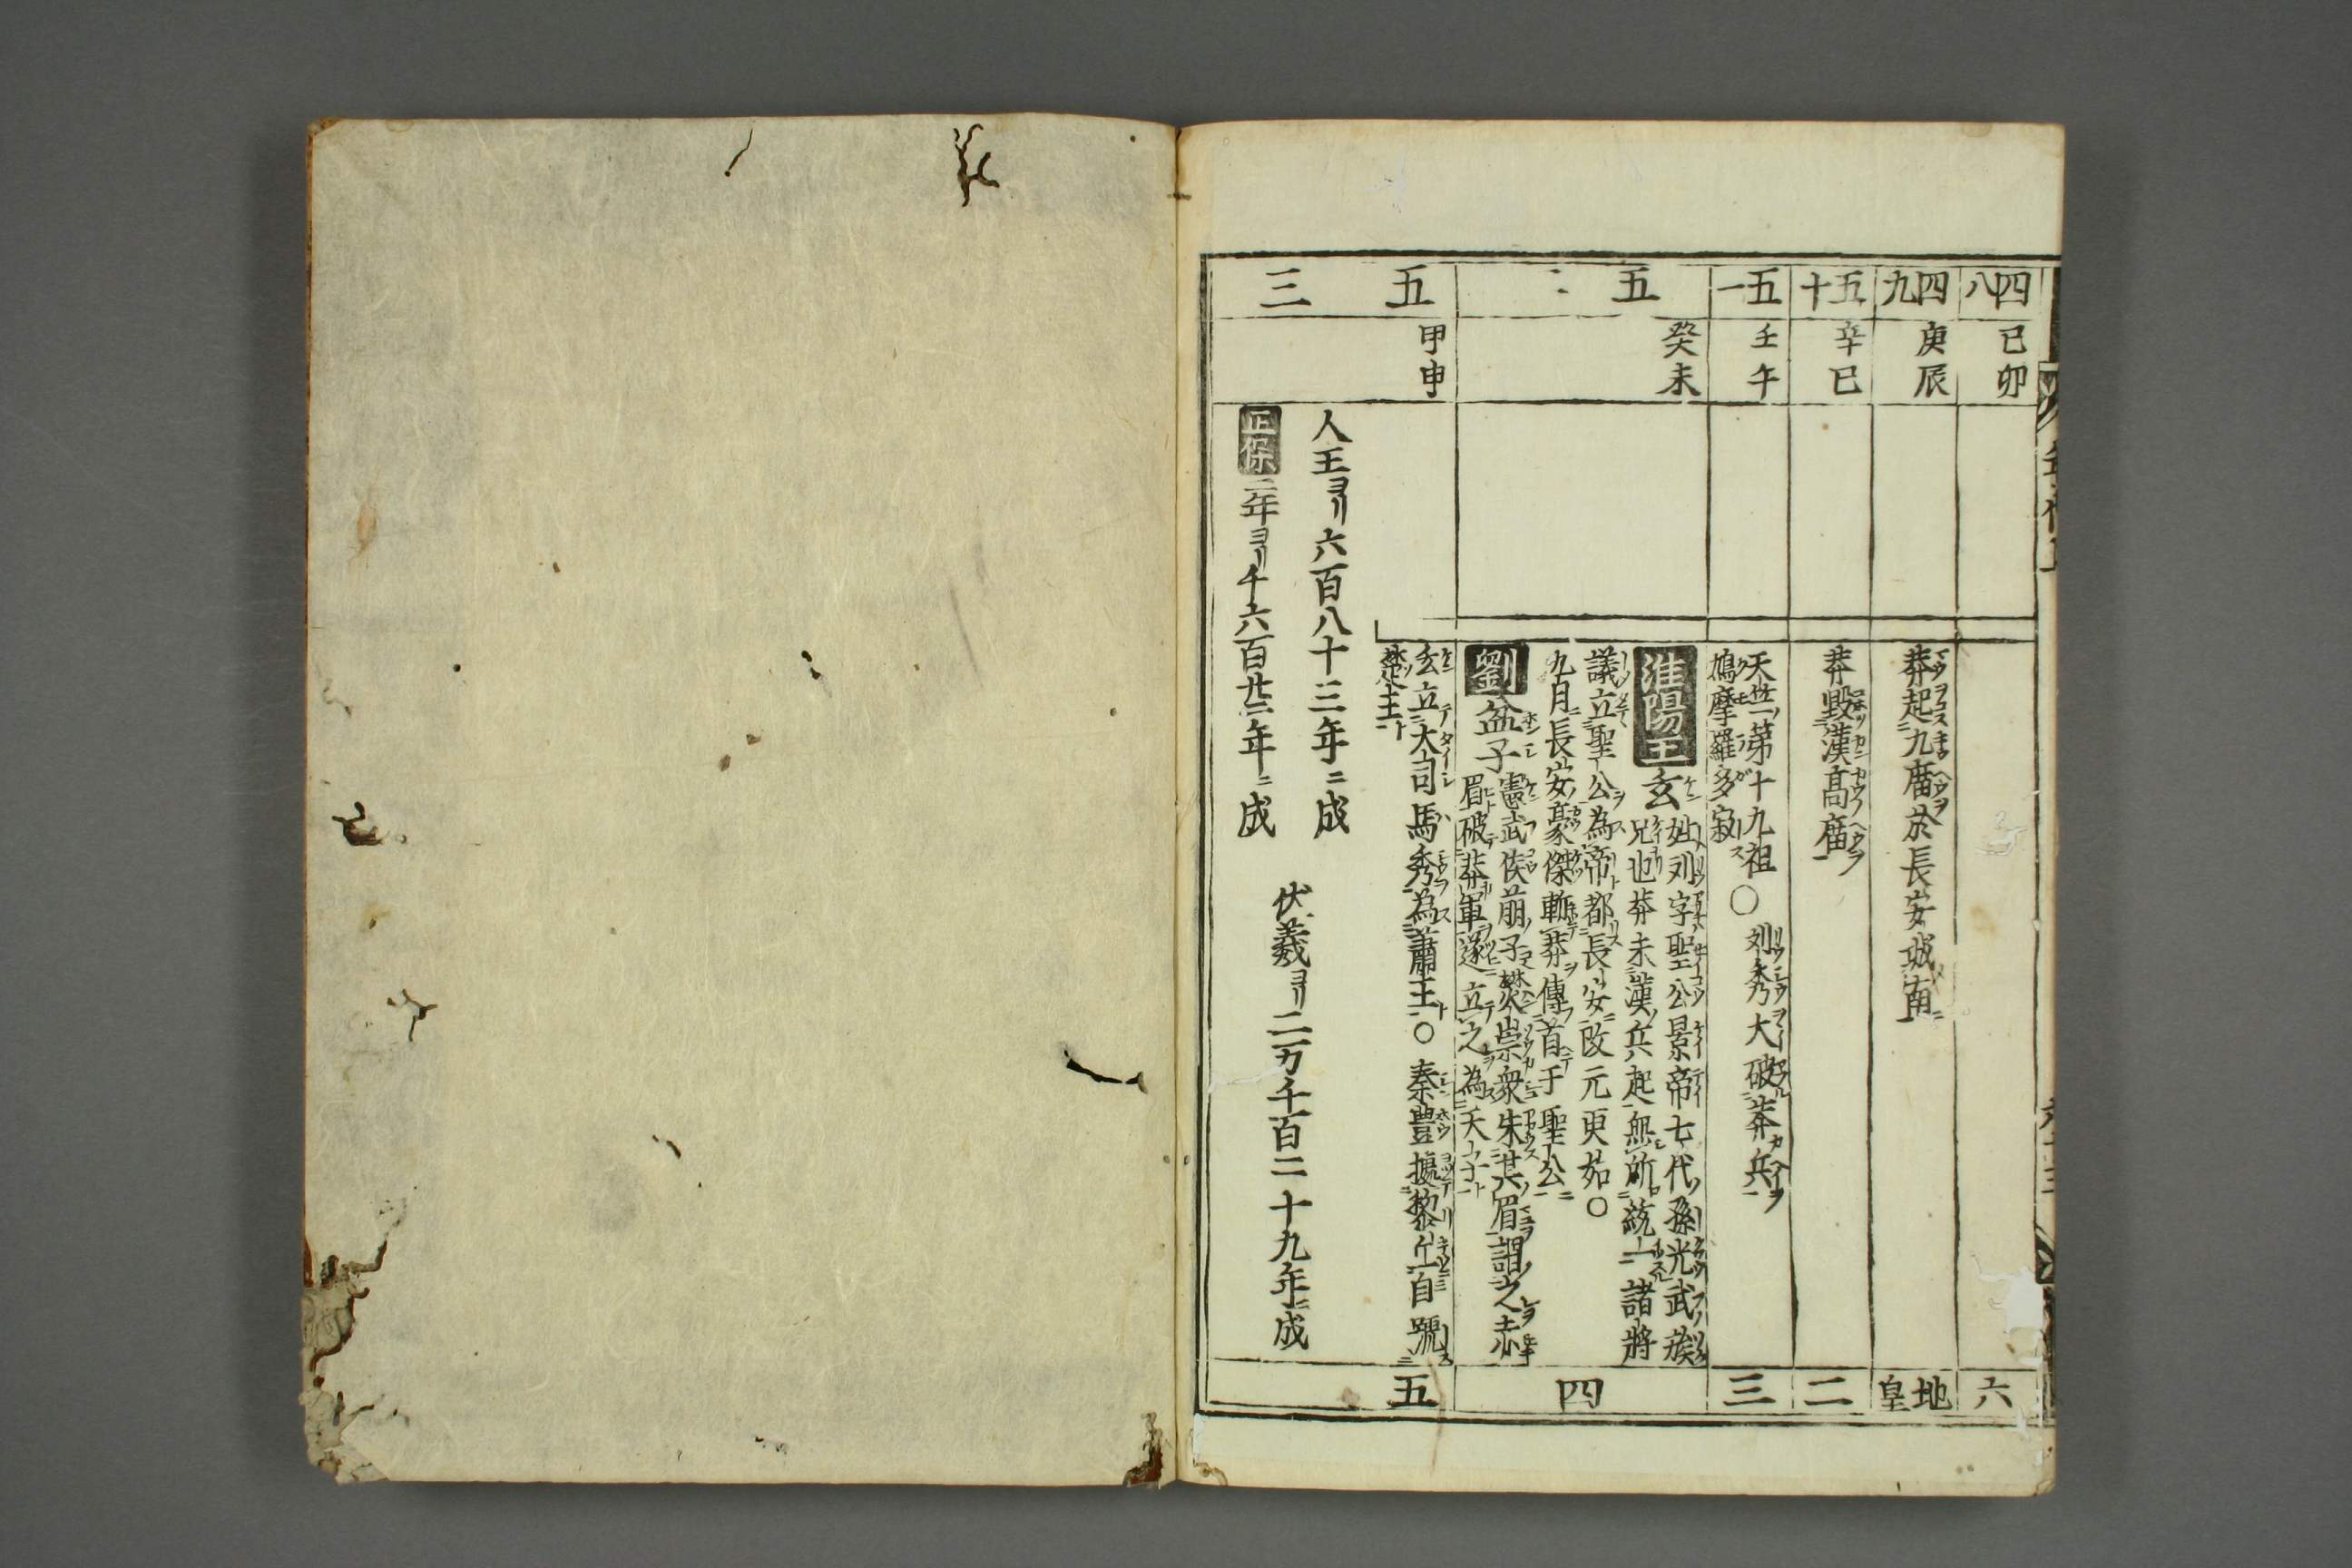 四八
己卯
六
四九
庚辰
莽起九庿於長安城南
地皇
五十
辛巳
莽毀漢高庿
二
五一
壬午
天竺第十九祖○刘秀大破莽兵
鳩摩羅多寂
三
五二
癸未
淮陽王玄姓刘字聖公景帝七代孫光武族
兄也莽末漢兵起無所統一諸將
議立聖公為帝都長安改元更始○
九月長安豪傑斬莽傳首于聖公
劉盆子憲武侯萠子樊崇衆朱其眉謂之赤
眉破莽軍遂立之為天子
四
五三
甲申
玄立大司馬秀為蕭王○秦豊據黎丘自號
楚王
五
人王ヨリ六百八十三年ニ成
伏羲ヨリ二万千百二十九年ニ成
正保二年ヨリ千六百廿二年ニ成